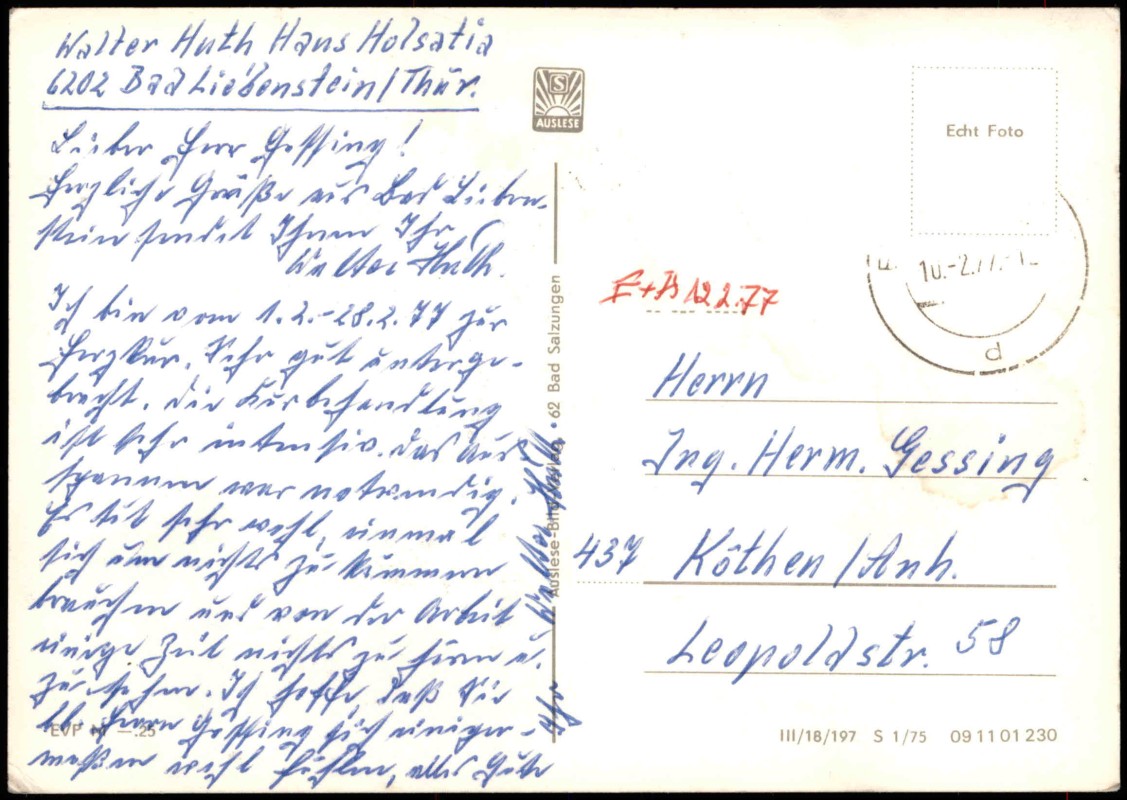 Walter Huth Haus Holsatia
6202 Bad Liebenstein/Thür.
Lieber Herr Gessing!
Herzliche Grüße aus Bad Lieben-
stein sendet Ihnen Ihr
Walter Huth.
Ich bin vom 1.2.-28.2.77 zur
Herzkur. Sehr gut unterge-
bracht. Die Kurbehandlung
ist sehr intensiv. Das Aus-
spannen war notwendig.
Es tut sehr wohl, einmal
sich um nichts zu kümmern
brauchen und von der Arbeit
einige Zeit nichts zu hören u.
zu sehen. Ich hoffe, daß Sie
lb. Herrn Gessing sich einiger-
maßen wohl fühlen, alles Gute
Ihr Walter Huth
EVP M -.25
S
AUSLESE
Auslese-Bild-Verlag • 62 Bad Salzungen
Echt Foto
10.-2.77.-1
d
E+B 12 2.77
Herrn
Ing. Herm. Gessing
437 Köthen/Anh.
Leopoldstr. 58
III/18/197 S 1/75 09 11 01 230